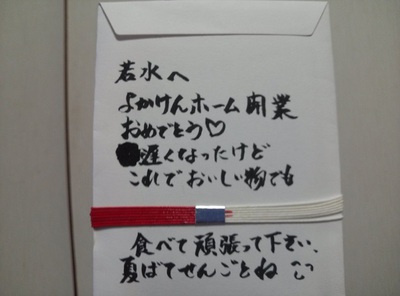 若水へ
よかけんホーム開業
おめでとう♡
遅くなったけど
これでおいしい物でも
食べて頑張って下さい、
夏ばてせんごとね